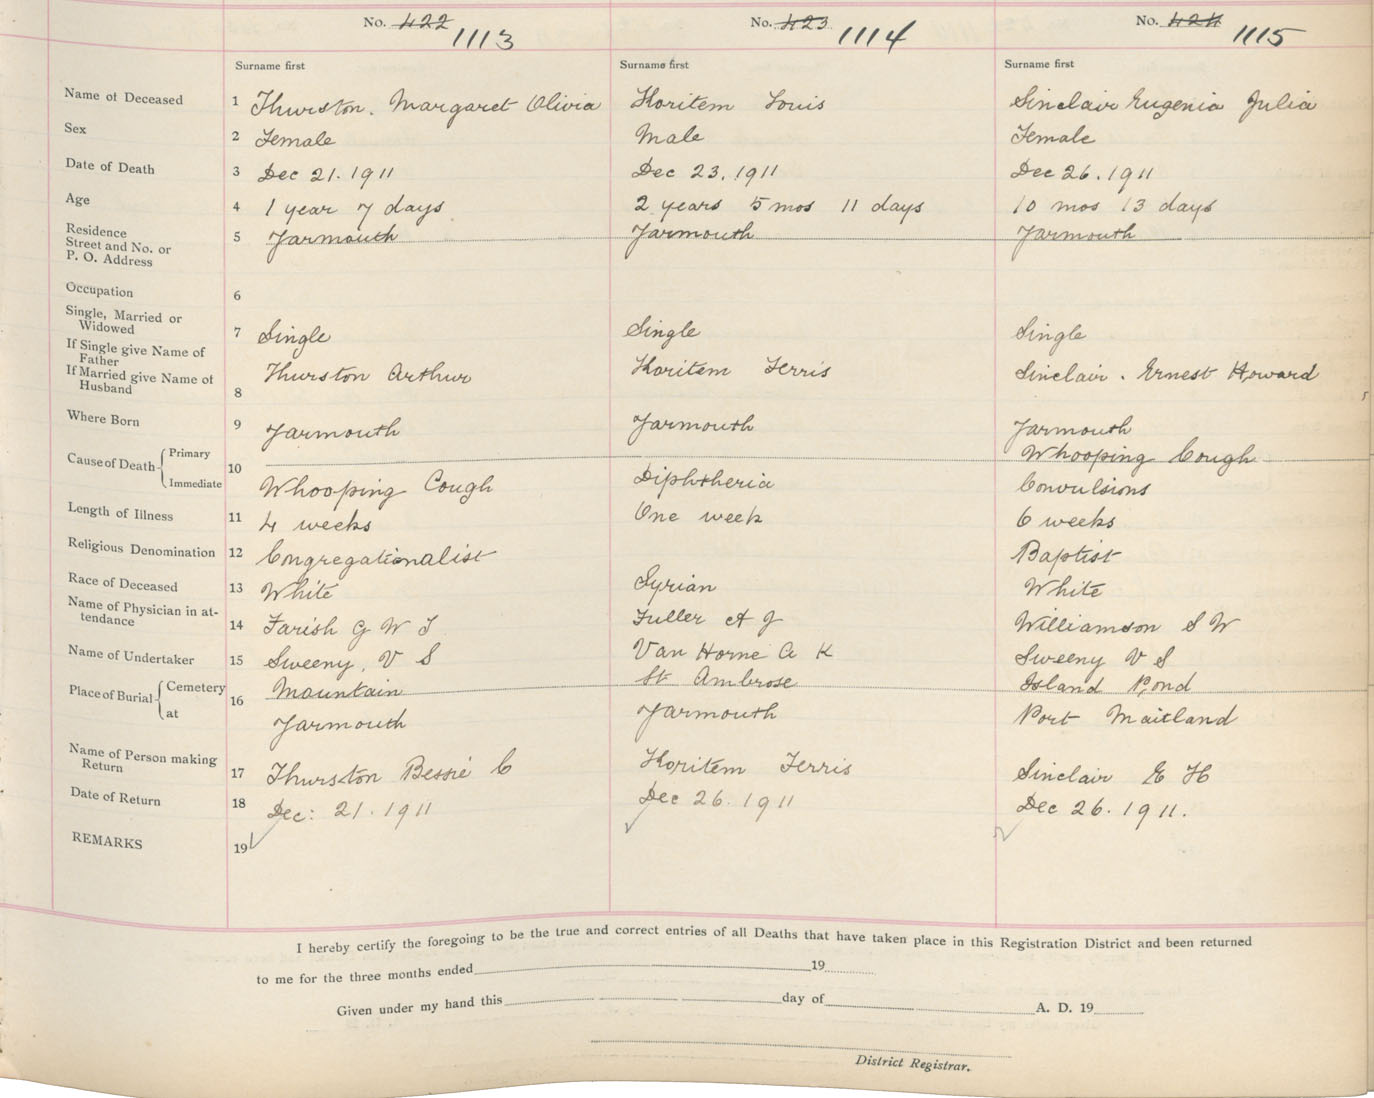 No. 422 1113 No. 423 1114 No. 424 1115
Surname first Surname first Surname first
Name of Deceased 1 Thurston. Margaret Olivia Koritem Louis Sinclair Eugenia Julia
Sex 2 Female Male Female
Date of Death 3 Dec 21. 1911 Dec 23. 1911 Dec 26. 1911
Age 4 1 year 7 days 2 years 5 mos 11 days 10 mos 13 days
Residence
Street and No. or 5 Yarmouth Yarmouth Yarmouth
P. O. Address
Occupation 6
Single, Married or
Widowed 7 Single Single Single
If Single give Name of
Father
If Married give Name of Thurston Arthur Koritem Ferris Sinclair. Ernest Howard
Husband 8
Where Born 9 Yarmouth Yarmouth Yarmouth
Cause of Death Primary Whooping Cough
10
Immediate Whooping Cough Diphtheria Convulsions
Length of Illness 11 4 weeks One week 6 weeks
Religious Denomination 12 Congregationalist Baptist
Race of Deceased 13 White Syrian White
Name of Physician in at-
tendance 14 Farish G W T Fuller A J Williamson S W
Name of Undertaker 15 Sweeny. V S Van Horne A K Sweeny V S
Place of Burial Cemetery 16 Mountain St Ambrose Island Pond
at Yarmouth Yarmouth Port Maitland
Name of Person making
Return 17 Thurston Bessie C Koritem Ferris Sinclair E H
Date of Return 18 Dec: 21. 1911 Dec 26. 1911 Dec 26. 1911.
REMARKS 19
I hereby certify the foregoing to be the true and correct entries of all Deaths that have taken place in this Registration District and been returned
to me for the three months ended 19
Given under my hand this day of A. D. 19
District Registrar.